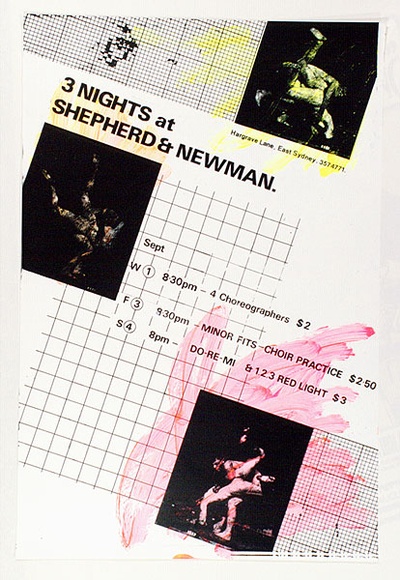 3 NIGHTS at
SHEPHERD & NEWMAN.
Hargrave Lane, East Sydney. 3574771.
Sept
W 1 8·30pm – 4 Choreographers $2
F 3 8·30pm – MINOR FITS – CHOIR PRACTICE $2·50
S 4 8pm – DO·RE·MI & 1 2 3 RED LIGHT $3